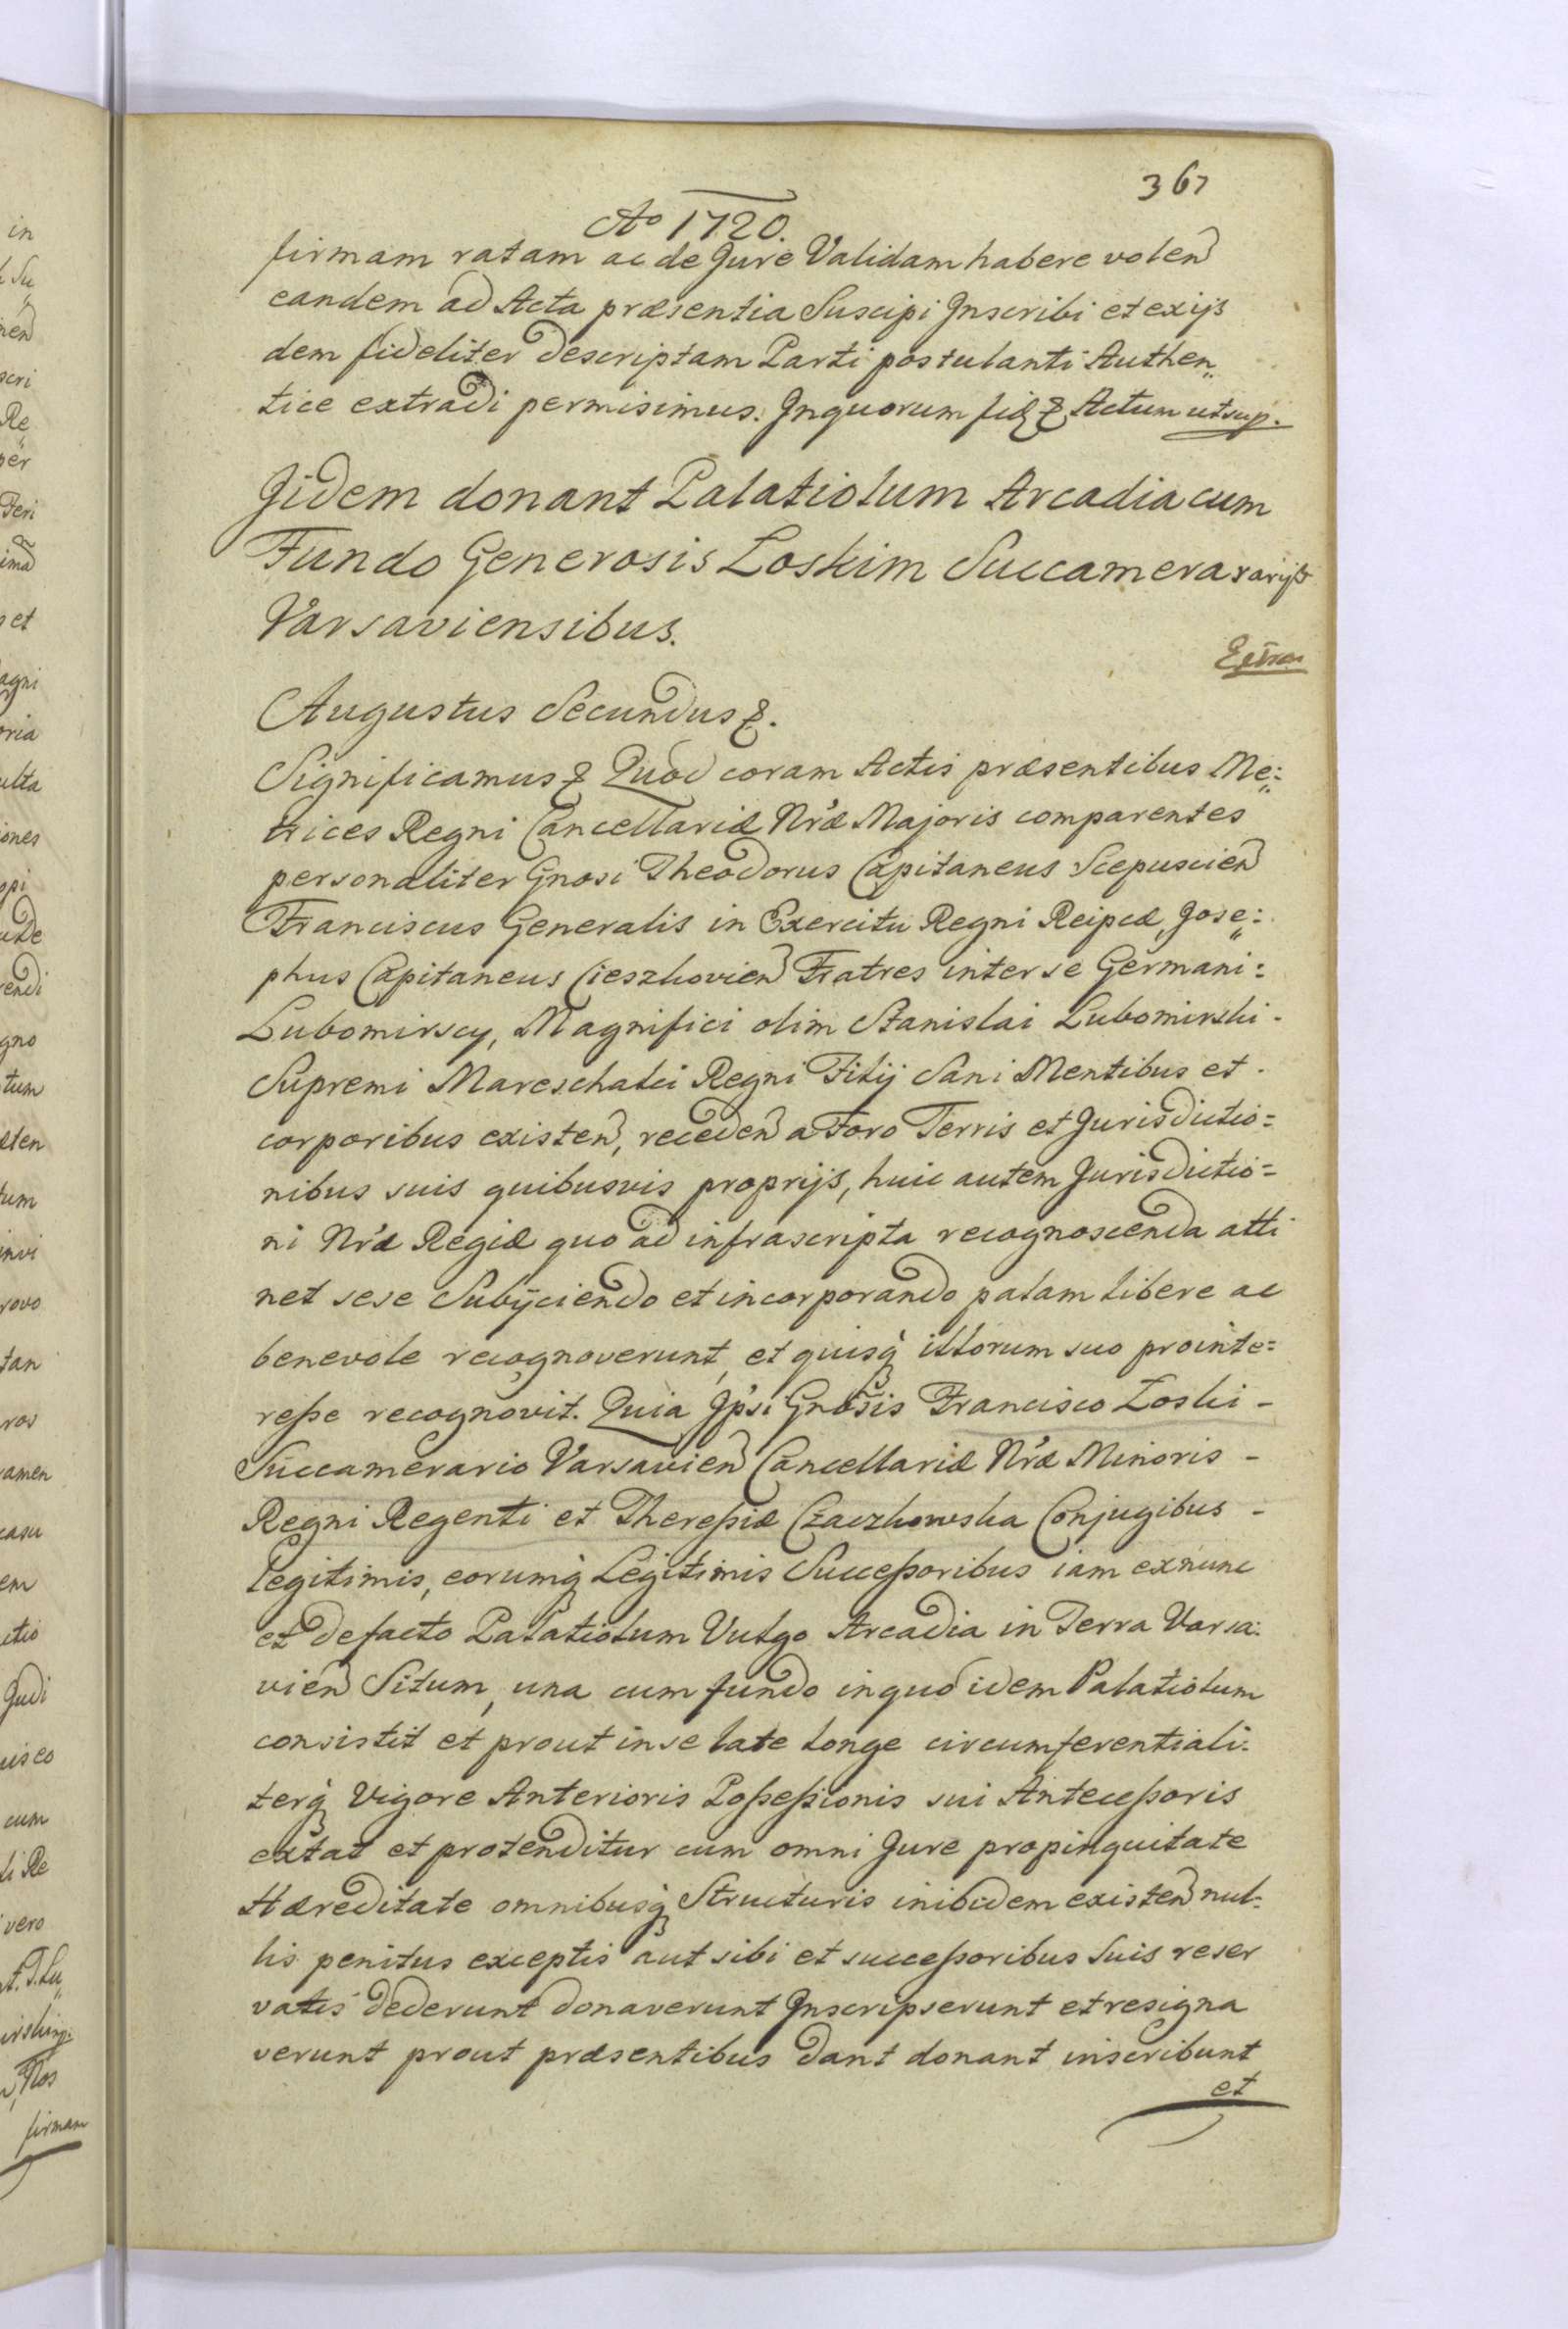 367
Ao 1720.
firmam ratam ac de Jure Validam habere volen
eandem ad Acta præsentia Suscipi Jnscribi et exijs
dem fideliter descriptam Parti postulanti Authen„
tice extradi permisimus. Jnquorum fid & Actum utsup.
Jidem donant Palatiolum Arcadia cum
Fundo Generosis Loskim Succamerarariis
Varsaviensibus.
Augustus Secundus &.
Significamus & Quod coram Actis præsentibus Me:
trices Regni Cancellariæ Nr'æ Majoris comparentes
personaliter Gnosi Theodorus Capitaneus Scepuscien
Franciscus Generalis in Exercitu Regni Reipcæ, Jose:
phus Capitaneus Cieszkovien Fratres inter se Germani:
Lubomirscy, Magnifici olim Stanislai Lubomirski -
Supremi Mareschalci Regni Filij Sani Mentibus et -
corporibus existen, receden a Foro Terris et Jurisdictio=
nibus suis quibusvis proprijs, huic autem Jurisdictio=
ni Nr'æ Regiæ quo ad infrascripta recognoscenda atti
net sese Subijciendo et incorporando palam libere ac
benevole recognoverunt, et quisq illorum suo prointe=
reße recognovit. Quia Jp'si Gnosis Francisco Loski -
Succamerario Varsavien Cancellariæ Nr'æ Minoris -
Regni Regenti et Thereßiæ Czaczkowska Conjugibus -
legitimis, eorumq Legitimis Succeßoribus iam exnunc
et defacto Palatiolum Vulgo Arcadia in Terra Varsa:
vien Situm, una cum fundo inquo idem Palatiolum
consistit et prout inse late longe circumferentiali:
terq Vigore Anterioris Poßeßionis sui Anteceßoris
extat et protenditur cum omni Jure propinquitate
Hæreditate omnibusq Structuris inibidem existen nul:
lis penitus exceptis aut sibi et succeßoribus Suis reser
vatis dederunt donaverunt Jnscripserunt et resigna
verunt prout præsentibus dant donant inscribunt
et